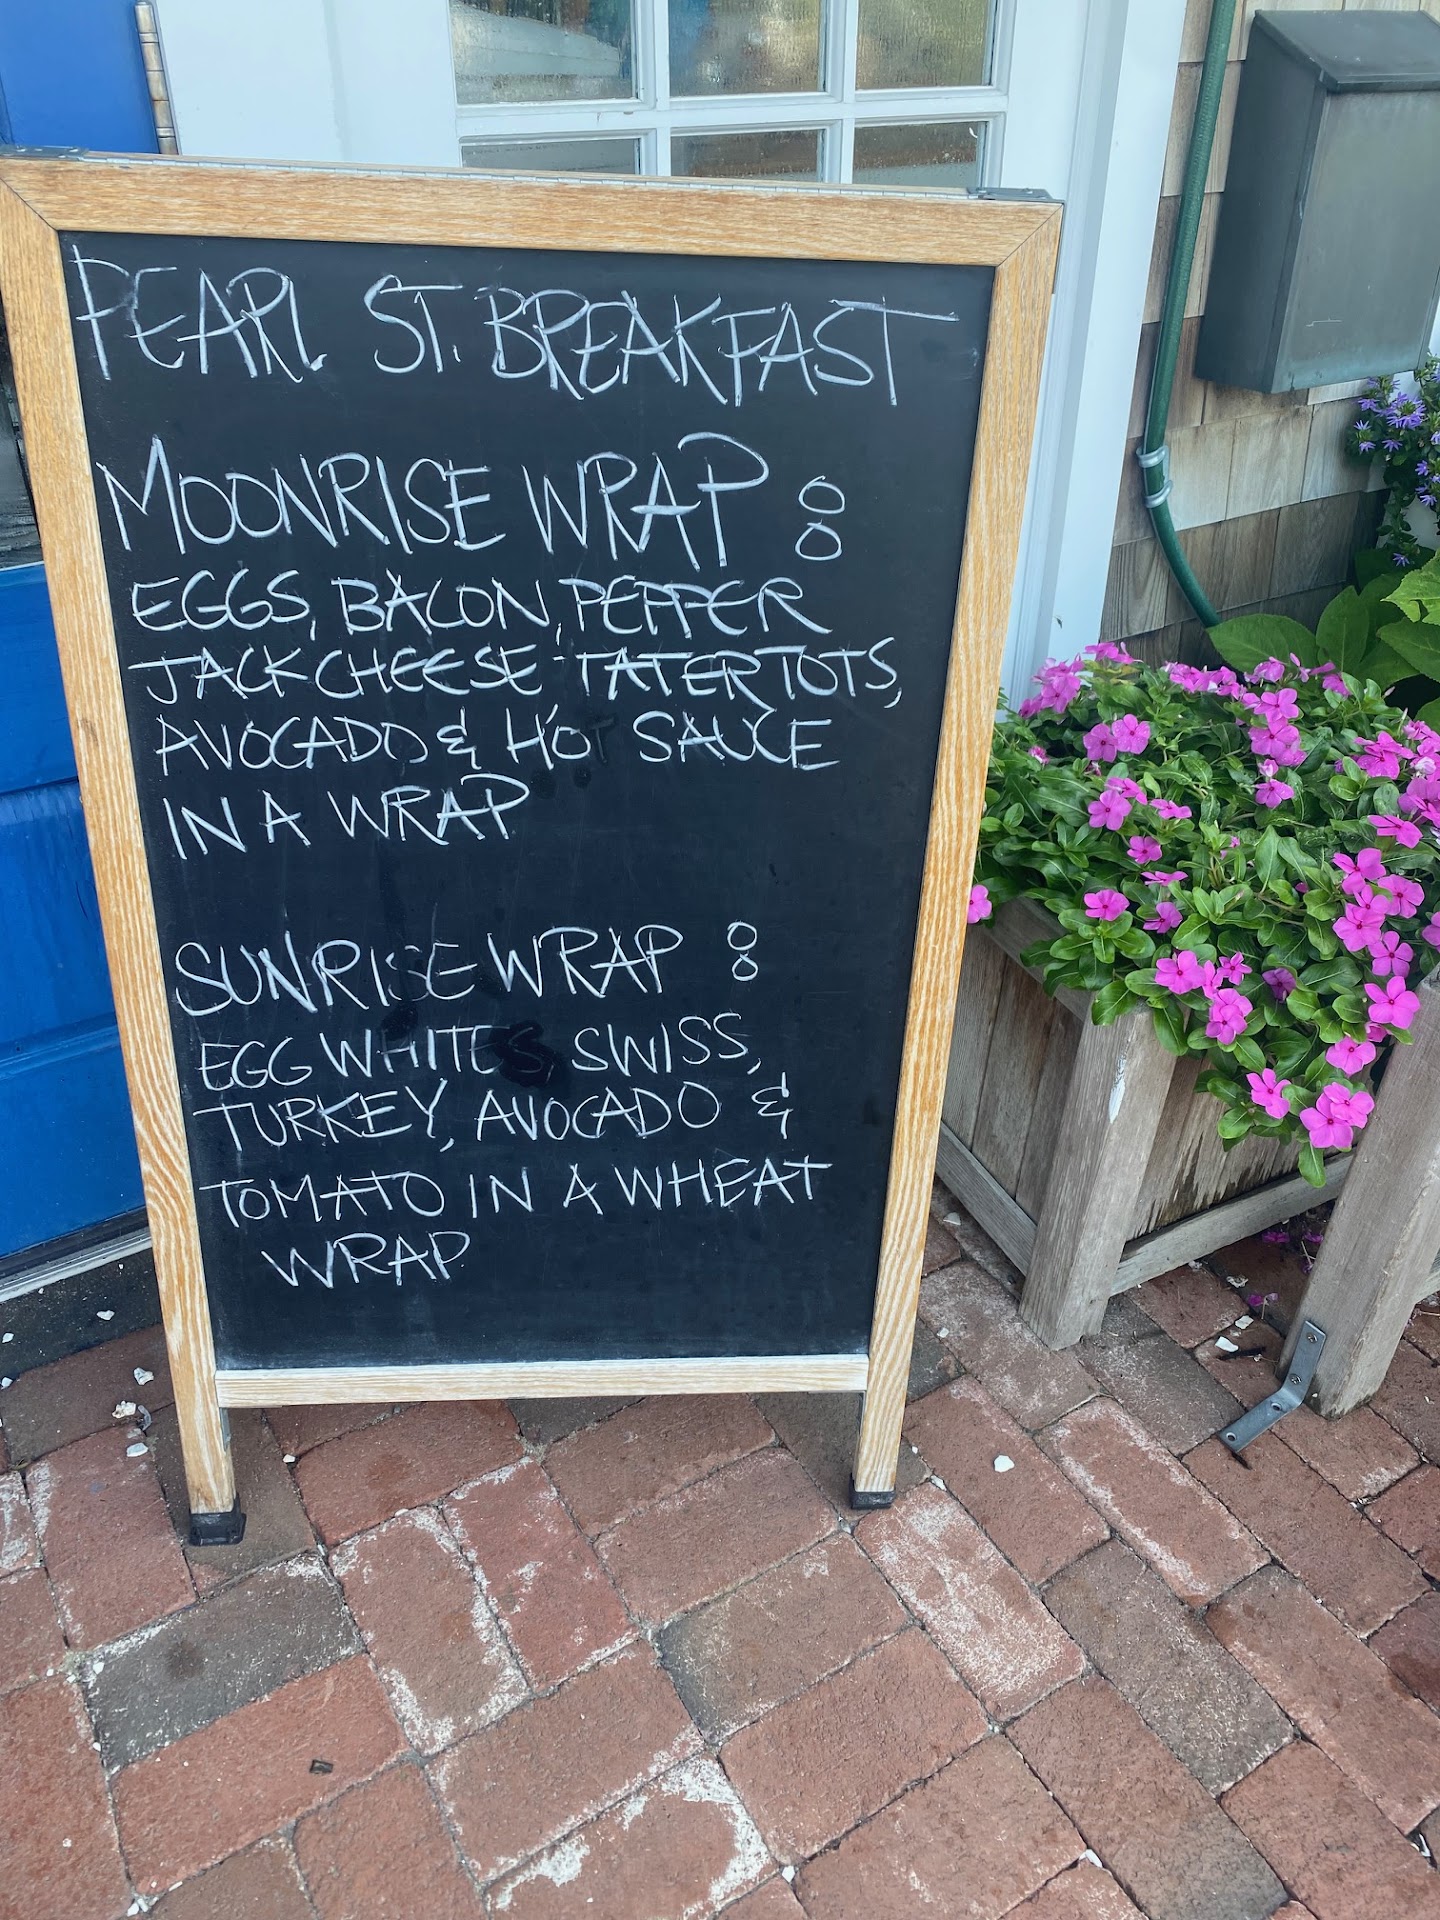 PEARL ST. BREAKFAST
MOONRISE WRAP :
EGGS, BACON, PEPPER
JACK CHEESE, TATER TOTS,
AVOCADO & HOT SAUCE
IN A WRAP
SUNRISE WRAP :
EGG WHITES, SWISS,
TURKEY, AVOCADO &
TOMATO IN A WHEAT
WRAP